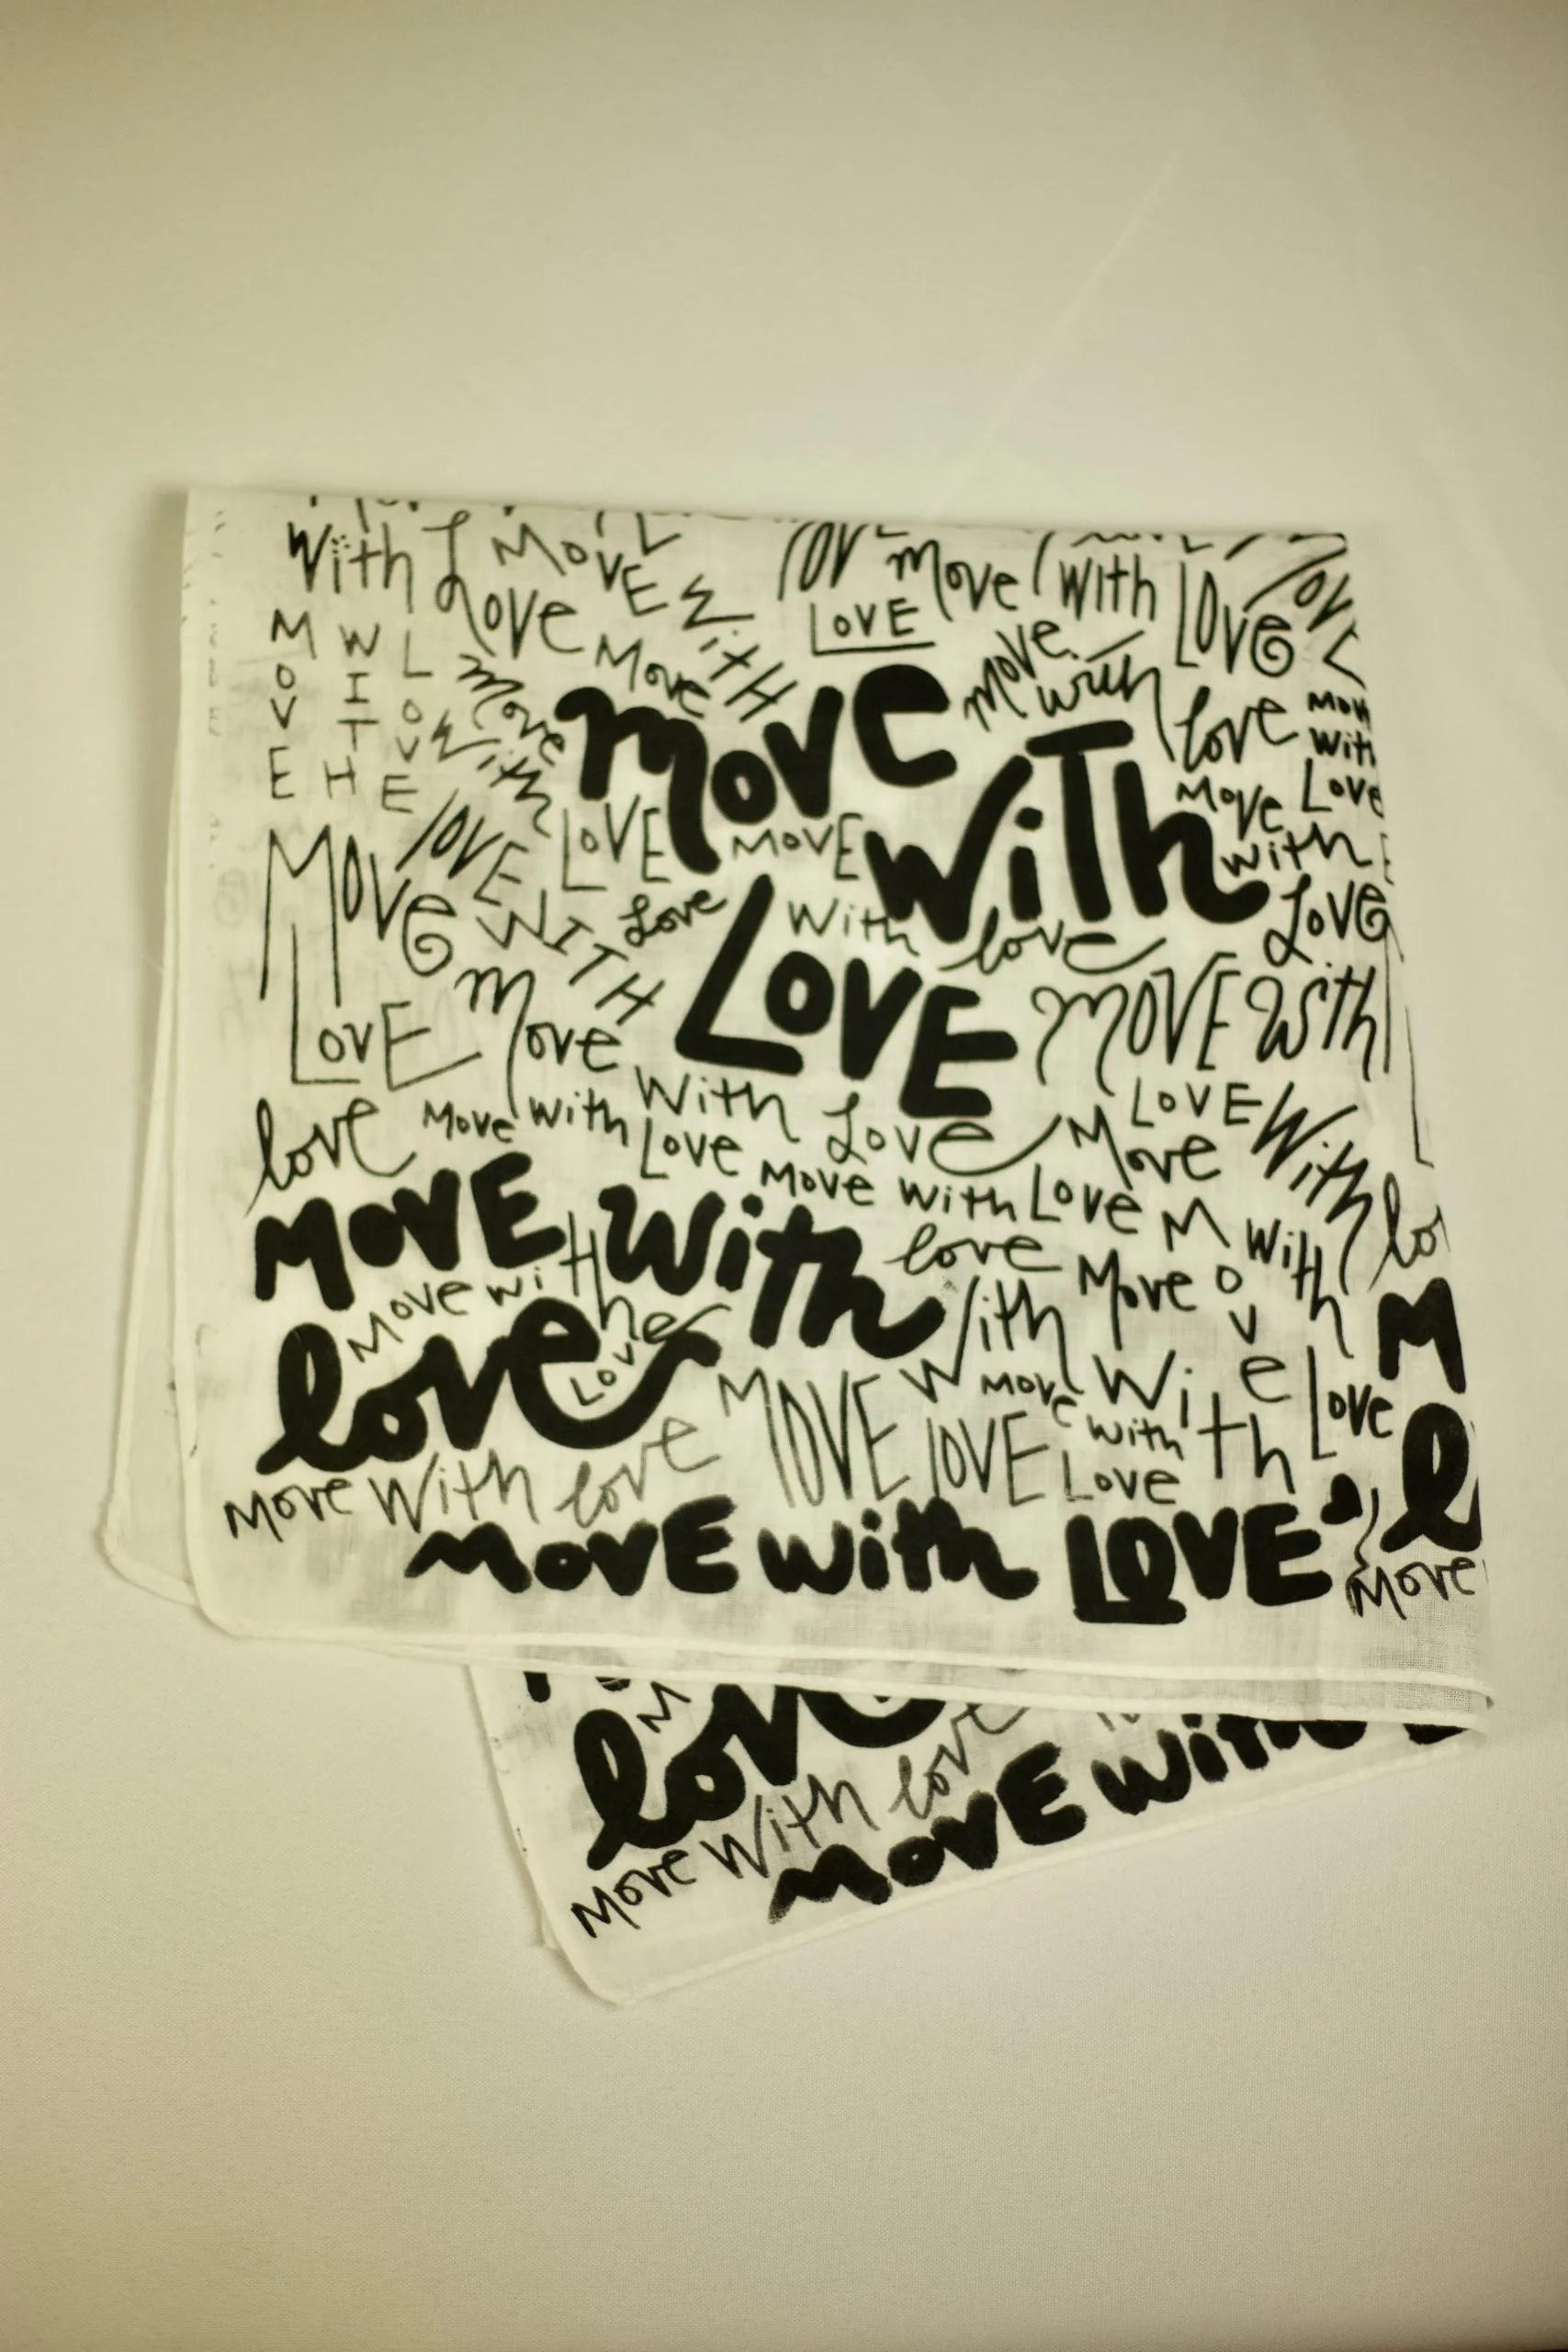 With Love
MOVE With
LOVE
Move With Love
MOVE
WITH
LOVE
Move
move With
love WITH
LOVE
Move
move
with
love
With
Love
Move
with
Love
move
WiTh
LOVE
MOVE
With
love
Love
Move
LOVE
Move
With Love
MOVE With
LOVE
love
Move With
Love
Move With Love
Move
With
MOVE With
love
Move with
Love
love
With
Move
Move
With
Love
MOVE
LOVE
Move
with
Love
With
Move With love
MOVE with LOVE
M
l
Move
love
Move With love
MOVE with